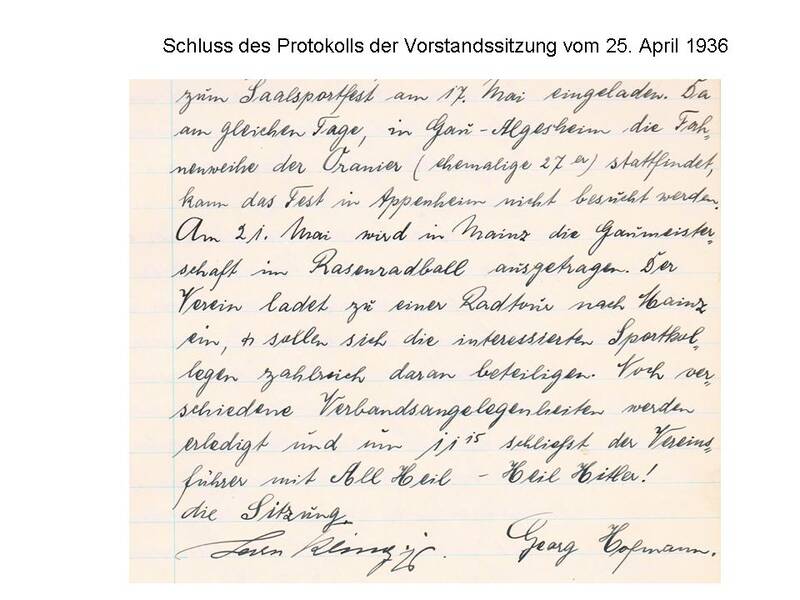 Schluss des Protokolls der Vorstandssitzung vom 25. April 1936
zum Saalsportfest am 17. Mai eingeladen. Da
am gleichen Tage, in Gau-Algesheim die Fah-
nenweihe der Oranier (ehemalige 27er) stattfindet,
kann das Fest in Appenheim nicht besucht werden.
Am 21. Mai wird in Mainz die Gaumeister-
schaft im Rasenradball ausgetragen. Der
Verein ladet zu einer Radtour nach Mainz
ein, & sollen sich die interessierten Sportkol-
legen zahlreich daran beteiligen. Noch ver-
schiedene Verbandsangelegenheiten werden
erledigt und um 11 15 schliesst der Vereins-
führer mit All Heil - Heil Hitler!
die Sitzung.
Georg Hofmann.